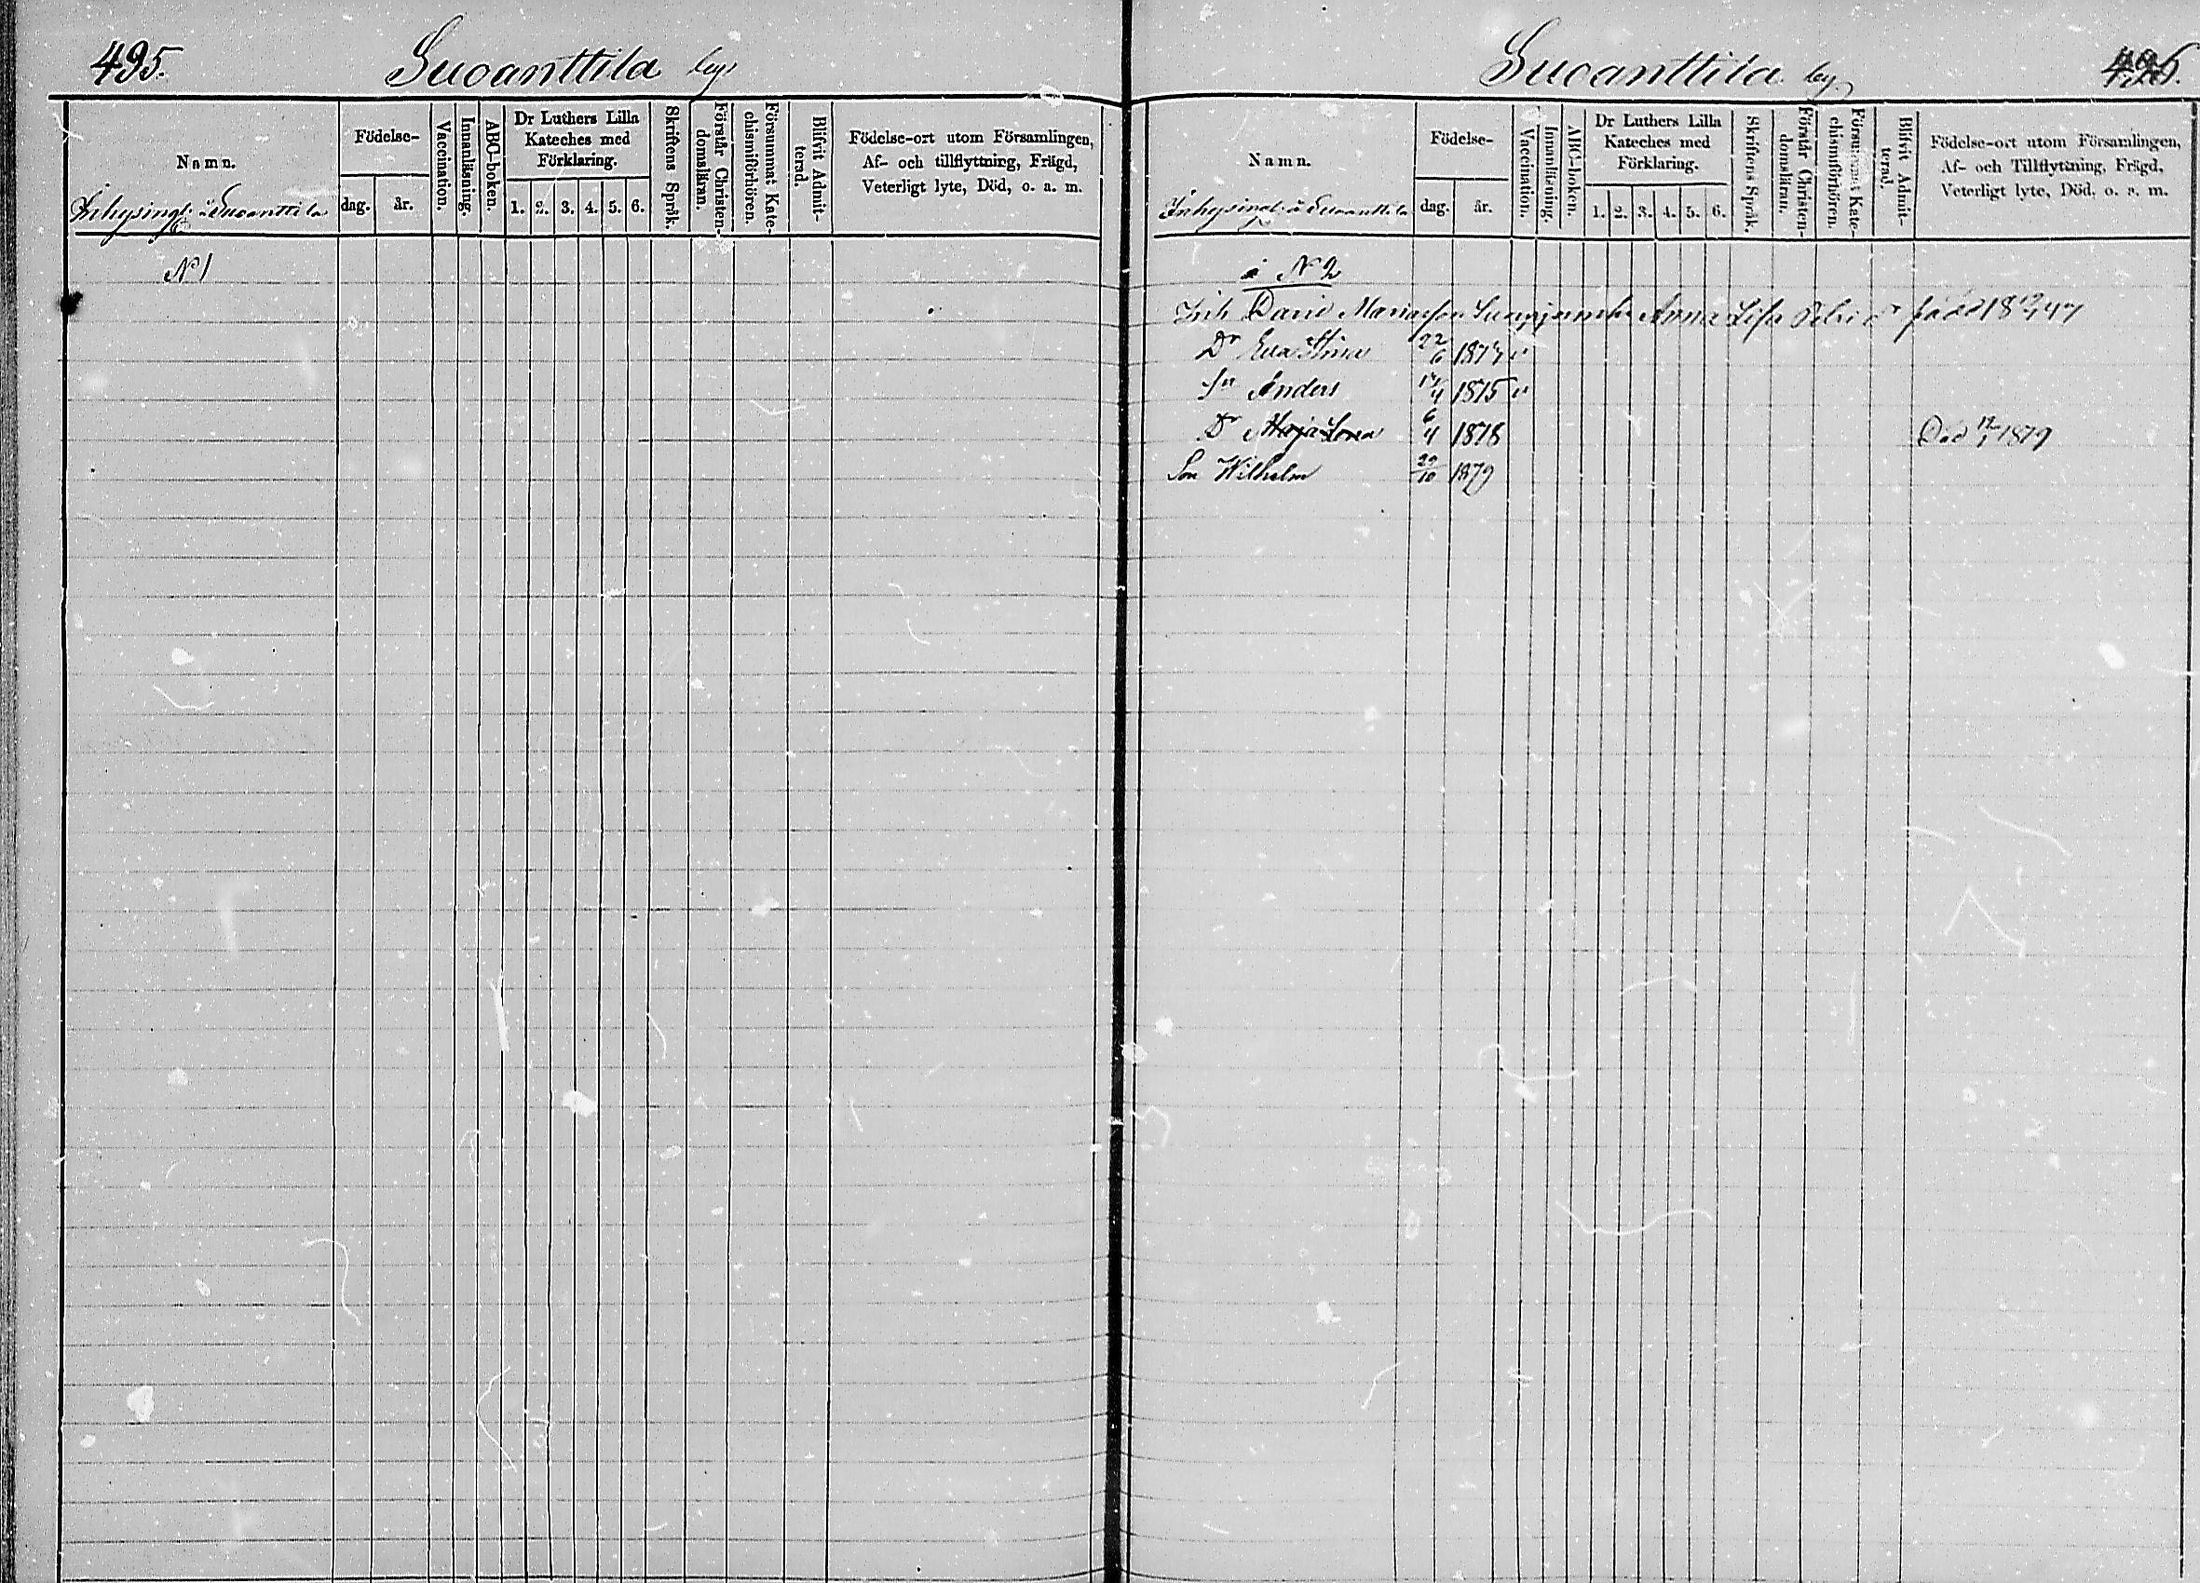 495.
Suoanttila by.
Namn.
Födelse-
dag.
år.
Vaccination.
Innanläsning.
ABC-boken.
Dr Luthers Lilla
Kateches med
Förklaring.
1. 2. 3. 4. 5. 6.
Skriftens Språk.
Förstår Christen-
domsläran.
Försummat Kate-
chismiförhören.
Blifvit Admit-
terad.
Födelse-ort utom Församlingen,
Af- och tillflyttning, Frägd,
Veterligt lyte, Död, o. a. m.
Inhysingl. å Suoanttila
N 1
Suoanttila by
Namn.
Födelse-
dag.
år.
Vaccination.
Innanläsning.
ABC-boken.
Dr Luthers Lilla
Kateches med
Förklaring.
1. 2. 3. 4. 5. 6.
Skriftens Språk.
Förstår Christen-
domsläran.
Försummat Kate-
chismiförhören.
Blifvit Admit-
terad.
Födelse-ort utom Församlingen,
Af- och Tillflyttning, Frägd,
Veterligt lyte, Död, o. a. m.
Inhysingl. å Suoanttila
i N 2
Inh David Mariasson Anna Lisa född
Dr Eva Stina 22/6
Sn Anders 1875
Dr Maja Lena 6/4 1878 Död 1879
Son Wilhelm 29/10 1879